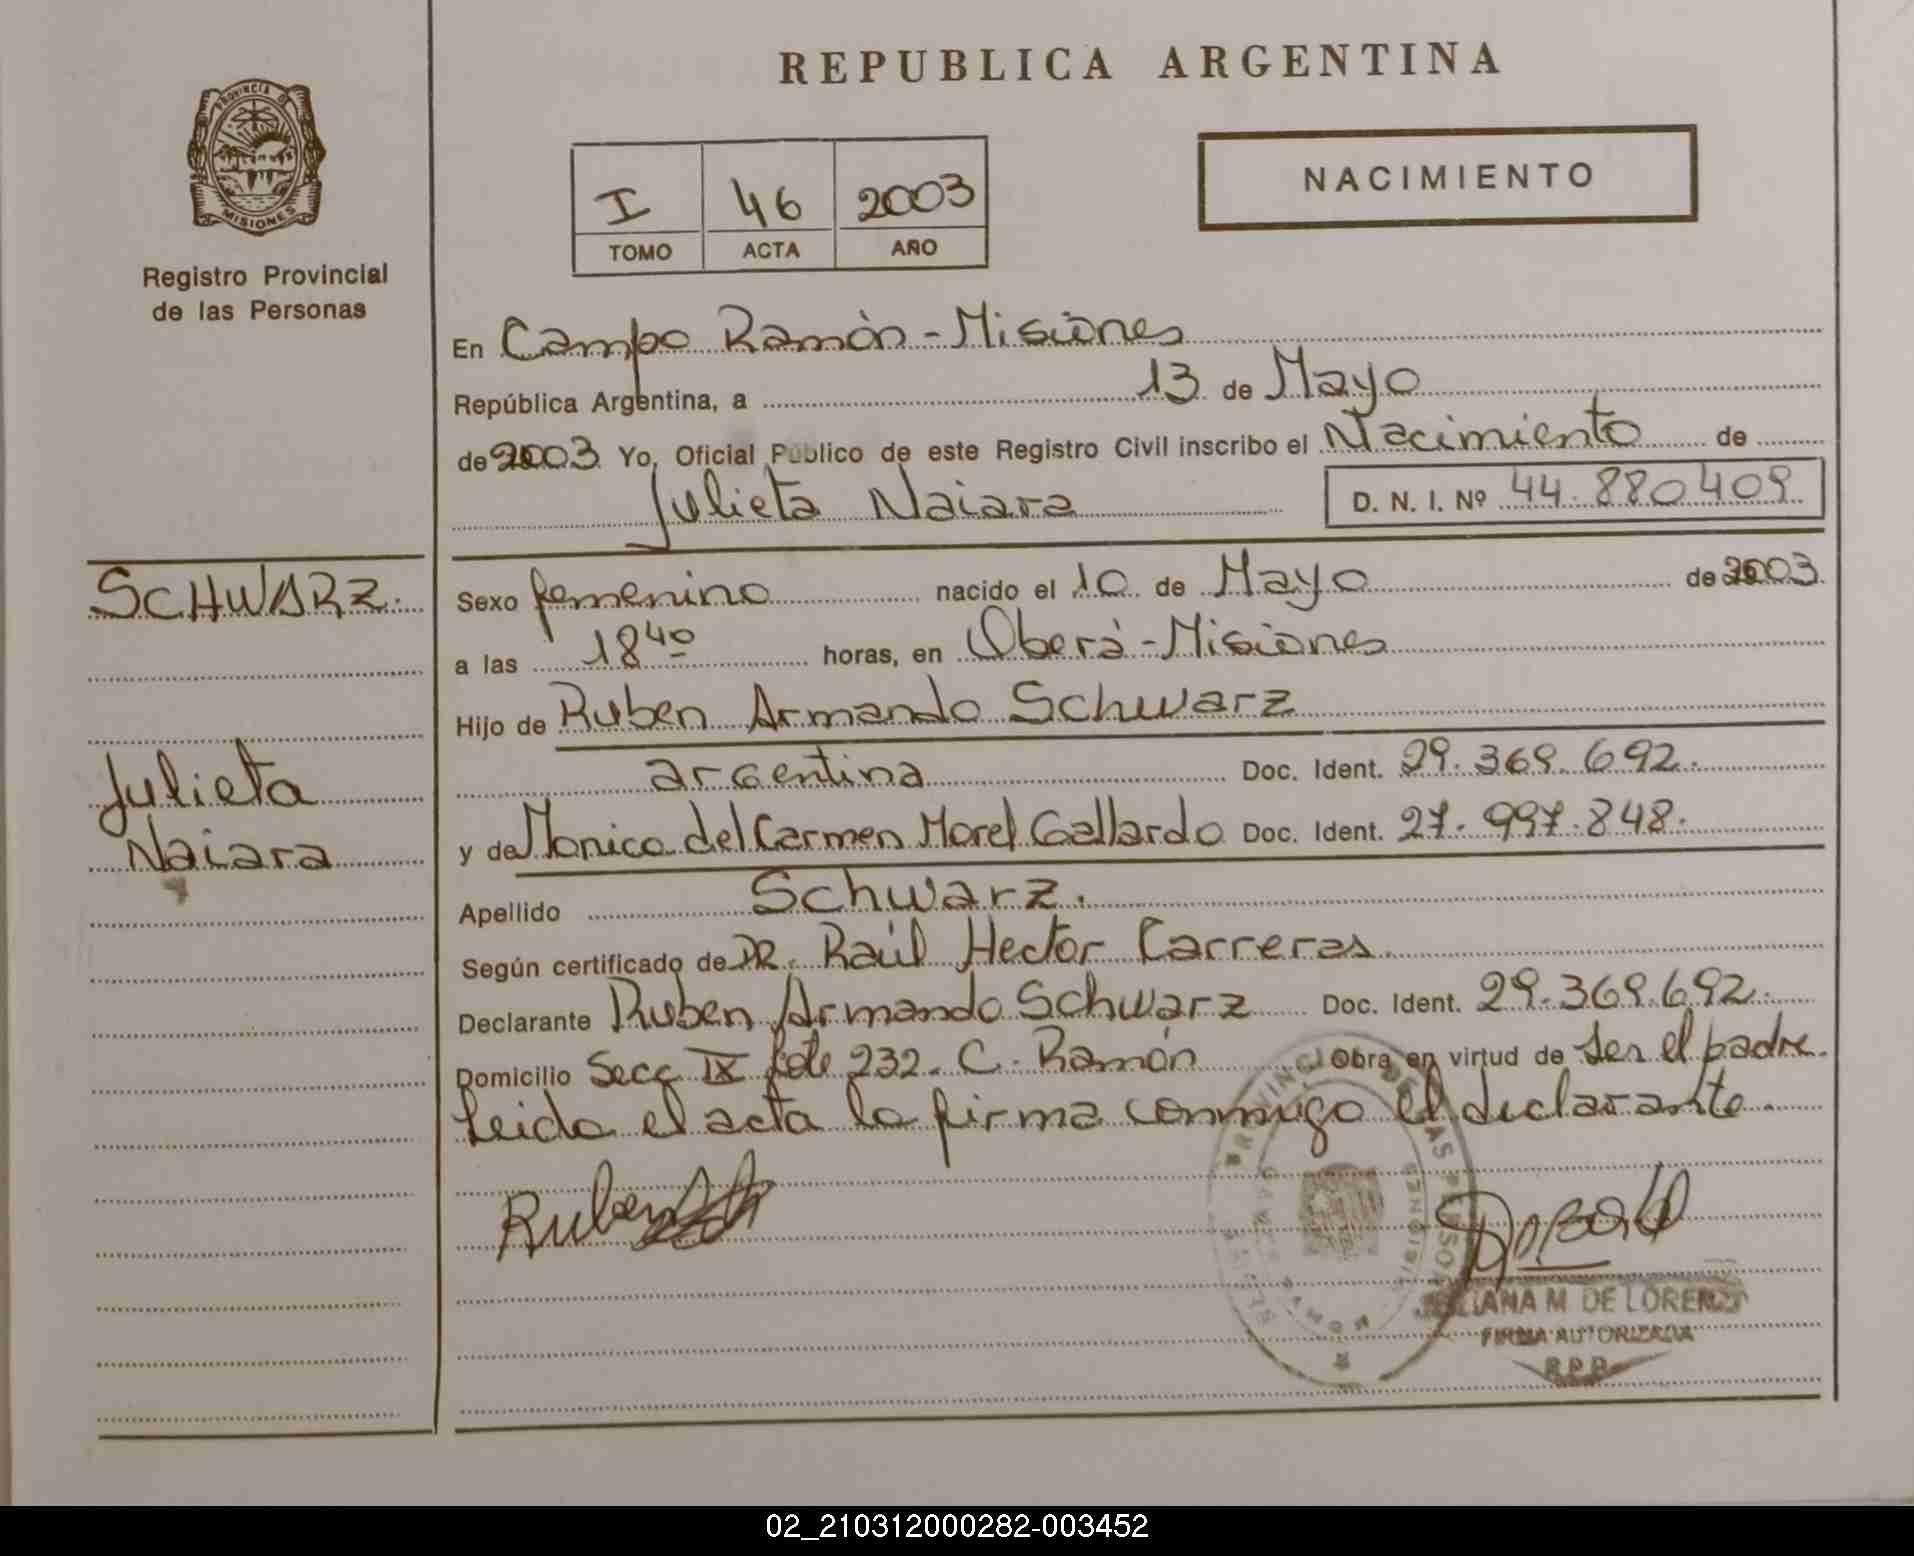 REPUBLICA ARGENTINA
PROVINCIA D
MISIONES
Registro Provincial
de las Personas
I 46 2003
TOMO ACTA AÑO
NACIMIENTO
En Campo Ramón - Misiones
República Argentina, a 13 de Mayo
de 2003 Yo, Oficial Público de este Registro Civil inscribo el Nacimiento de
Julieta Naiara D. N. I. Nº 44.880409
SCHWARZ.
Julieta
Naiara
Sexo femenino nacido el 10 de Mayo de 2003
a las 18 40 horas, en Oberá - Misiones
Hijo de Ruben Armando Schwarz
argentina Doc. Ident. 29.369.692.
y de Monica del Carmen Morel Gallardo Doc. Ident. 27.997.848.
Apellido Schwarz.
Según certificado de DR. Raúl Hector Carreras.
Declarante Ruben Armando Schwarz Doc. Ident. 29.369.692.
Domicilio Secc IX Lote 232. C. Ramón Obra en virtud de ser el padre.
Leida el acta la firma conmigo el declarante.
Ruben
M. DE LORENZO
FIRMA AUTORIZADA
R.P.P.
02_210312000282-003452